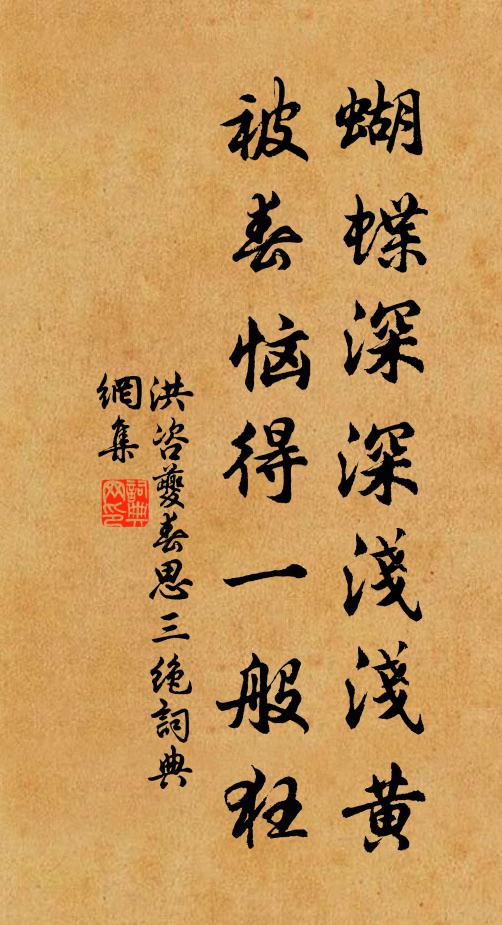 蝴蝶深深淺淺黄
被春恼得一般狂
洪咨夔春思三绝詞典
網集
詞典
网印